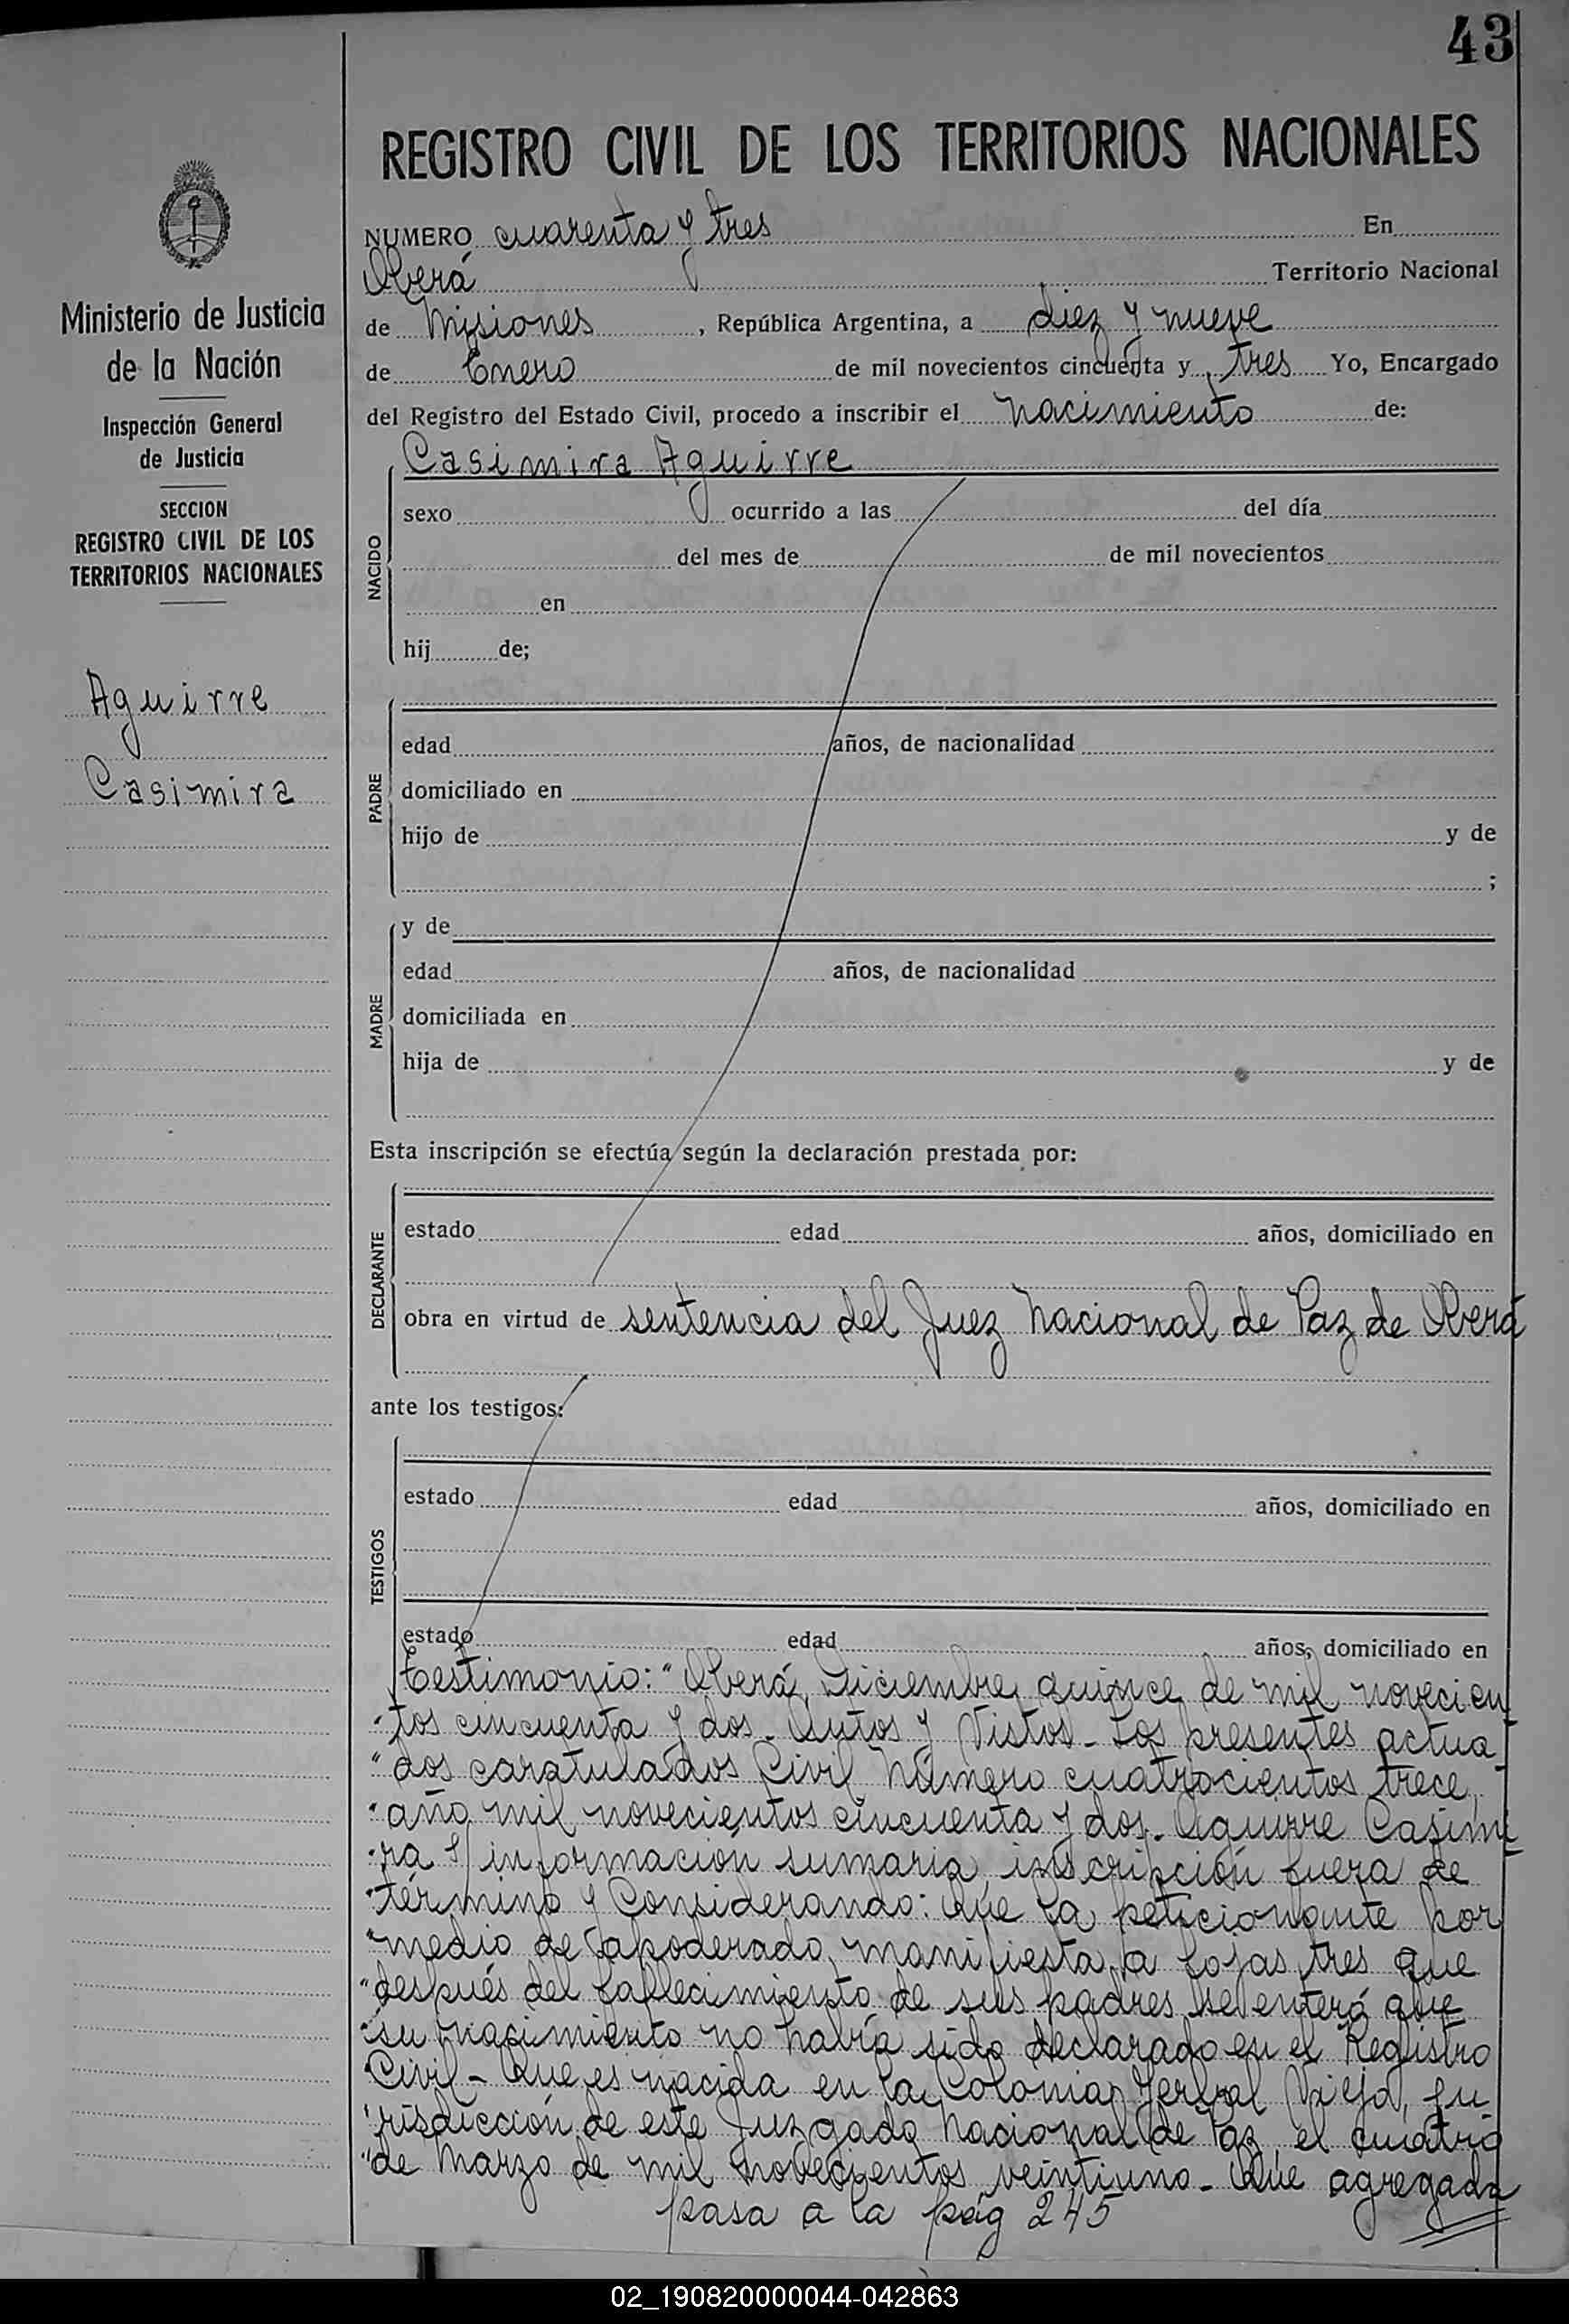 43
REGISTRO CIVIL DE LOS TERRITORIOS NACIONALES
Ministerio de Justicia
de la Nación
Inspección General
de Justicia
SECCION
REGISTRO CIVIL DE LOS
TERRITORIOS NACIONALES
Aguirre
Casimira
NUMERO cuarenta y tres En
Oberá Territorio Nacional
de Misiones, República Argentina, a diez y nueve
de Enero de mil novecientos cincuenta y tres Yo, Encargado
del Registro del Estado Civil, procedo a inscribir el nacimiento de:
Casimira Aguirre
NACIDO
sexo ocurrido a las del día
del mes de de mil novecientos
en
hij de;
PADRE
edad años, de nacionalidad
domiciliado en
hijo de y de
;
MADRE
y de
edad años, de nacionalidad
domiciliada en
hija de y de
Esta inscripción se efectúa según la declaración prestada por:
DECLARANTE
estado edad años, domiciliado en
obra en virtud de sentencia del Juez Nacional de Paz de Oberá
ante los testigos:
TESTIGOS
estado edad años, domiciliado en
estado edad años, domiciliado en
Testimonio: "Oberá, Diciembre quince de mil novecien
"tos cincuenta y dos. Autos y Vistos - Los presentes actua
"dos caratulados Civil Número cuatrocientos trece,
"año mil novecientos cincuenta y dos. Aguirre Casimi
"ra s/ información sumaria, inscripción fuera de
"término y Considerando: Que la peticionante por
"medio de apoderado, manifiesta a fojas tres que
"después del fallecimiento de sus padres se enteró que
"su nacimiento no había sido declarado en el Registro
"Civil - Que es nacida en la Colonia Yerbal Viejo, ju
"risdicción de este Juzgado Nacional de Paz, el cuatro
"de Marzo de mil novecientos veintiuno - Que agregada
pasa a la pág 245
02_190820000044-042863